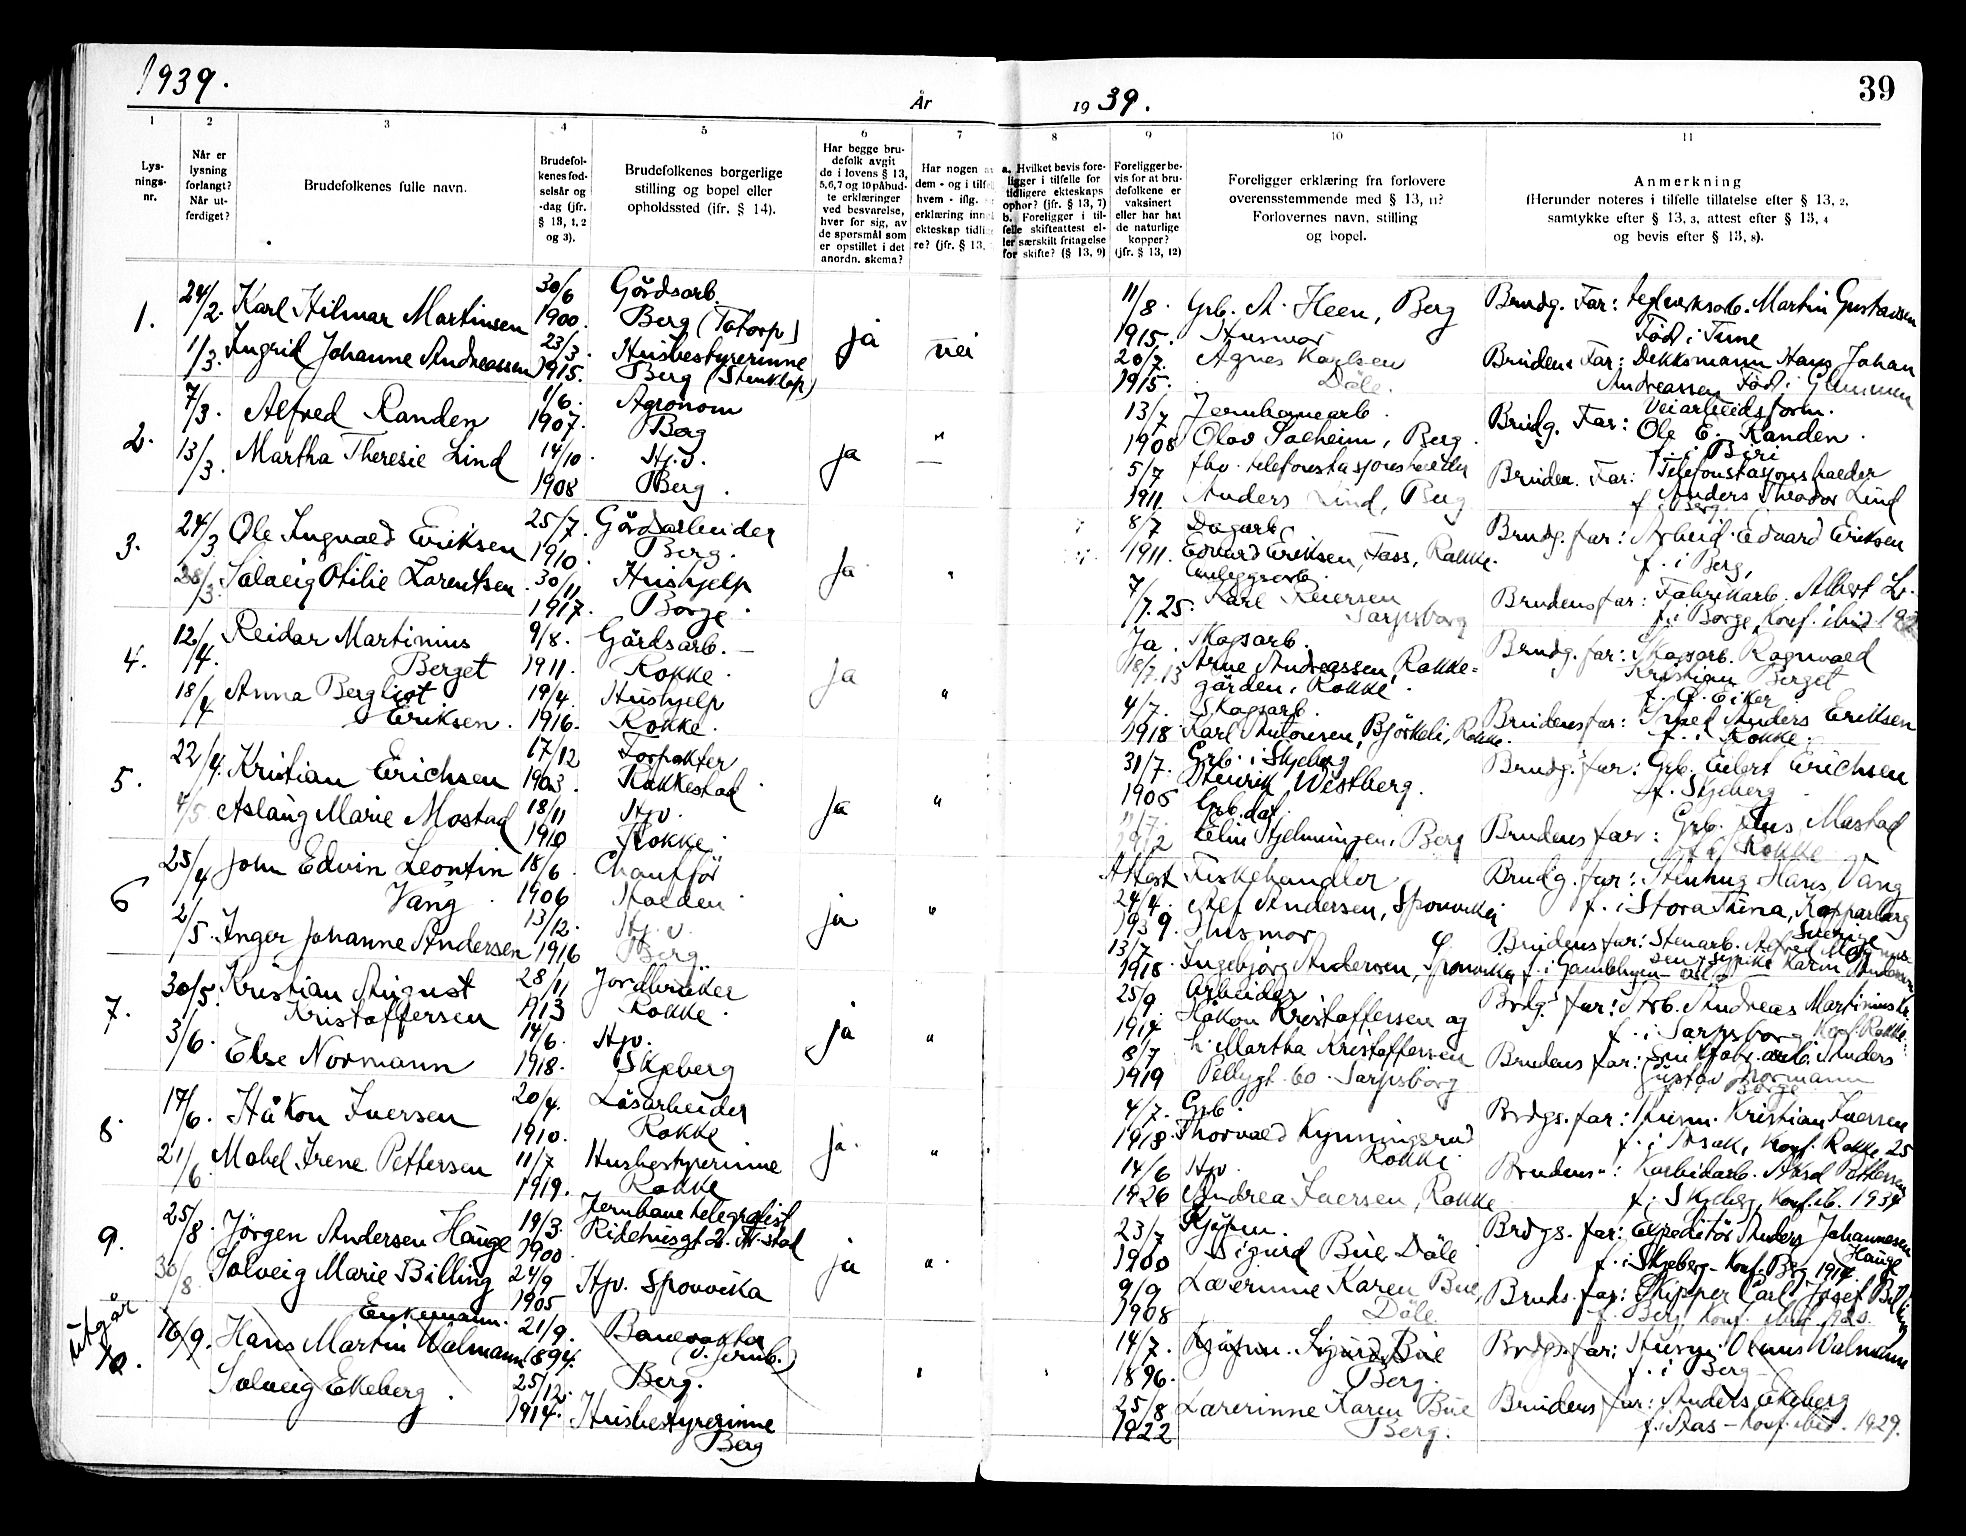 1939.
År
19 39.
39
1
2
3
4
5
6
7
8
9
10
11
Lys-
nings-
nr.
Når er
lysning
forlangt?
Når ut-
ferdiget?
Brudefolkenes fulle navn.
Brudefol-
kenes fød-
selsår og
-dag (jfr.
§ 13, 1, 2
og 3).
Brudefolkenes borgerlige
stilling og bopel eller
opholdssted (jfr. § 14).
Har begge bru-
defolk avgit
de i lovens § 13,
5,6,7 og 10 påbud-
te erklæringer
ved besvarelse,
hver for sig, av
de spørsmål som
er opstillet i det
anordn. skema?
Har nogen a
dem - og i tilf
hvem - iflg.
erklæring inn
ekteskap tidli
re? (jfr. § 13,
a. Hvilket bevis fore-
ligger i tilfelle for
tidligere ekteskaps
ophør? (jfr. § 13, 7)
b. Foreligger i til-
felle skifteattest el-
ler særskilt fritagelse
for skifte? (§ 13, 9)
Foreligger be-
vis for at bru-
defolkene er
vaksinert
eller har hat
de naturlige
kopper?
(jfr. § 13, 12)
Foreligger erklæring fra forlovere
overensstemmende med § 13, 11?
Forlovernes navn, stilling
og bopel.
Anmerkning
(Herunder noteres i tilfelle tillatelse efter § 13, 2,
samtykke efter § 13, 3, attest efter § 13, 4
og bevis efter § 13, 8).
1.
24/2.
Karl Hilmar Martinsen
30/6
1900.
Gårdsarb.
Berg (Tatorp)
1/3.
Ingrid Johanne Andreassen
23/3.
1915.
Husbestyrerinne
Berg
ja
nei
11/8.
1915.
Grb. A. Heen, Berg
20/7.
1915.
Husmor
Agnes Karlsen
Dåle.
Brudg. Far: teglverksarb. Martin Gustavsen
Född i Tune
Brudens Far: Dekksmann Hans Johan
Andreassen Född i
2.
7/3.
Alfred Randen
1/6.
1907.
Agronom
Berg
13/3.
Martha Theresie Lind
14/10.
1908
Hj.v.
Berg.
ja
"
13/7
1908
Jernbanearb.
Olav Solheim, Berg.
5/7
1911.
fhv. telefonstasjonsholder
Anders Lind, Berg
Brudg. Far: Veiarbeidsform.
Ole E. Randen.
f. i Biri
Bruden. Far: Telefonstasjonsholder
Anders Theodor Lind
f. Berg.
3.
24/3
Ole Ingvald Eriksen
25/7.
1910.
Gårdsarbeider
Berg.
28/3.
Solveig Otilie Lorentsen.
30/11
1917.
Hushjelp
Borge.
Ja
"
8/7
1911.
Dagarb.
Edvard Eriksen, Foss, Rokke.
7/7. 25.
Anleggsarb.
Karl Reiersen
Sarpsborg
Brudg. far: Arbeid. Edvard Eriksen
f. i Berg,
Brudens far: Fabrikarb. Albert L.
f. i Borge, Konf. ibid.
4.
12/4.
Reidar Martinius
Berget
9/8.
1911.
Gårdsarb.
Rokke.
18/4
Anna Bergliot
Eriksen.
19/4.
1916.
Hushjelp
Rokke.
ja
"
Ja.
18/7. 13
Skogsarb.
Arne Andreassen, Rokke-
gården, Rokke.
4/7.
1918
Skogsarb.
Karl Antonsen, Björkeli, Rokke.
Brudg. far: Skogsarb. Ragnvald
Kristian Berget
f. Ø. Eiker.
Brudens far: Anders Eriksen
f. i Rokke.
5.
22/4.
Kristian Erichsen
17/12
1903
Forpakter
Rakkestad
4/5
Aslaug Marie Mostad
18/11
1910
Hjv.
Rokke.
ja
"
31/7.
1905
Grb. i Skjeberg
Henrik Westberg.
Grb. dat.
Elin Hjelmungen, Berg
Brudg. far: Grb. Eilert Erichsen
f. Skjeberg
Brudens far: Grb. Jens Mostad
f. i Rokke
6
25/4
John Edvin Leontin
Vång.
18/6.
1906
Chaufför
Halden.
2/5.
Inger Johanne Andersen
13/12.
1916
Hj.v.
Berg.
ja
"
Attest
24/4.
1939.
Fiskehandler
Alf Andersen, Sponvika
13/7
1918.
Husmor
Ingebjørg Andersen, Sponvika
Brudg. far: Stenhug. Hans Vång
f. i Stora Tuna, Kopparberg
Sverige
Brudens far: Stenarb. Alfred Magnus-
sen
7.
30/5.
Kristian August
Kristoffersen
28/11
1913
Jordbruker
Rokke.
3/6.
Else Normann
14/6.
1918.
Hjv.
Skjeberg
ja
"
25/9.
1914
Arbeider
Håkon Kristoffersen og
8/7
1919
h. Martha Kristoffersen
Pellygt. 60. Sarpsborg
Brdg. far: Arb. Andreas Martinius Kr.
f. i Sarpsborg Konf. Rokke.
Brudens far: Anders
Gustav Normann
f. i Borge.
8.
17/6.
Håkon Iversen
20/4.
1910.
Låsarbeider
Rokke.
21/6
Mabel Irene Pettersen
11/7
1919.
Husbestyrerinne
Rokke
ja.
"
4/7.
1918.
Grb.
Thorvald Kynningsrud
Rokke.
14/6
1926
Hjv.
Andrea Iversen, Rokke
Brdgs. far: Husm. Kristian Iversen
f. i Asak, Konf. Rokke, 25
Brudens ": Karbidarb. Aksel Pettersen
f. i Skjeberg, Konf. ib. 1934
9.
25/8.
Jörgen Andersen Hauge
19/3.
1900.
Jernbanetelegrafist
Ridehusgt 2. Fr.stad
30/8
Solveig Marie Billing
24/9
1905
Hjv. Sponvika
ja
"
23/7
1900
Kjøpm.
Sigurd Bue Dåle
9/9
1908
Lærerinne Karen Bue,
Dåle
Brdgs. far: Expeditör Anders Johannesen
Hauge
f. i Skjeberg - Konf. Berg 1914.
Bruds. far: Skipper Carl Josef Billing
f. Berg, Konf. ibid 1920.
utgår
10.
16/9.
Enkemann.
Hans Martin Walmann
21/9.
1894.
Banevokter
(v. jernb.)
Berg.
Solveig Ekeberg.
25/12.
1914.
Husbestyrerinne
Berg
14/7.
1896.
Kjøpm. Sigurd Bue
Berg.
25/8
1922
Lærerinne Karen Bue
Berg.
Brdgs. far: Husm. Walmann
f. i Berg
Brudens far: Anders Ekeberg
f. i Aas - Konf. ibid. 1929.